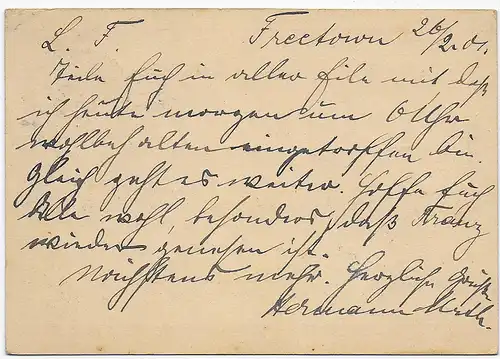 L. F. Freetown 26/2.01.
Teile Euch in aller Eile mit, daß
ich heute morgen um 6 Uhr
wohlbehalten eingetorffen bin.
Gleich geht es weiter. Hoffe Euch
Alle wohl, besonders, daß Franz
wieder genesen ist.
Nächstens mehr. Herzliche Grüße
Hermann